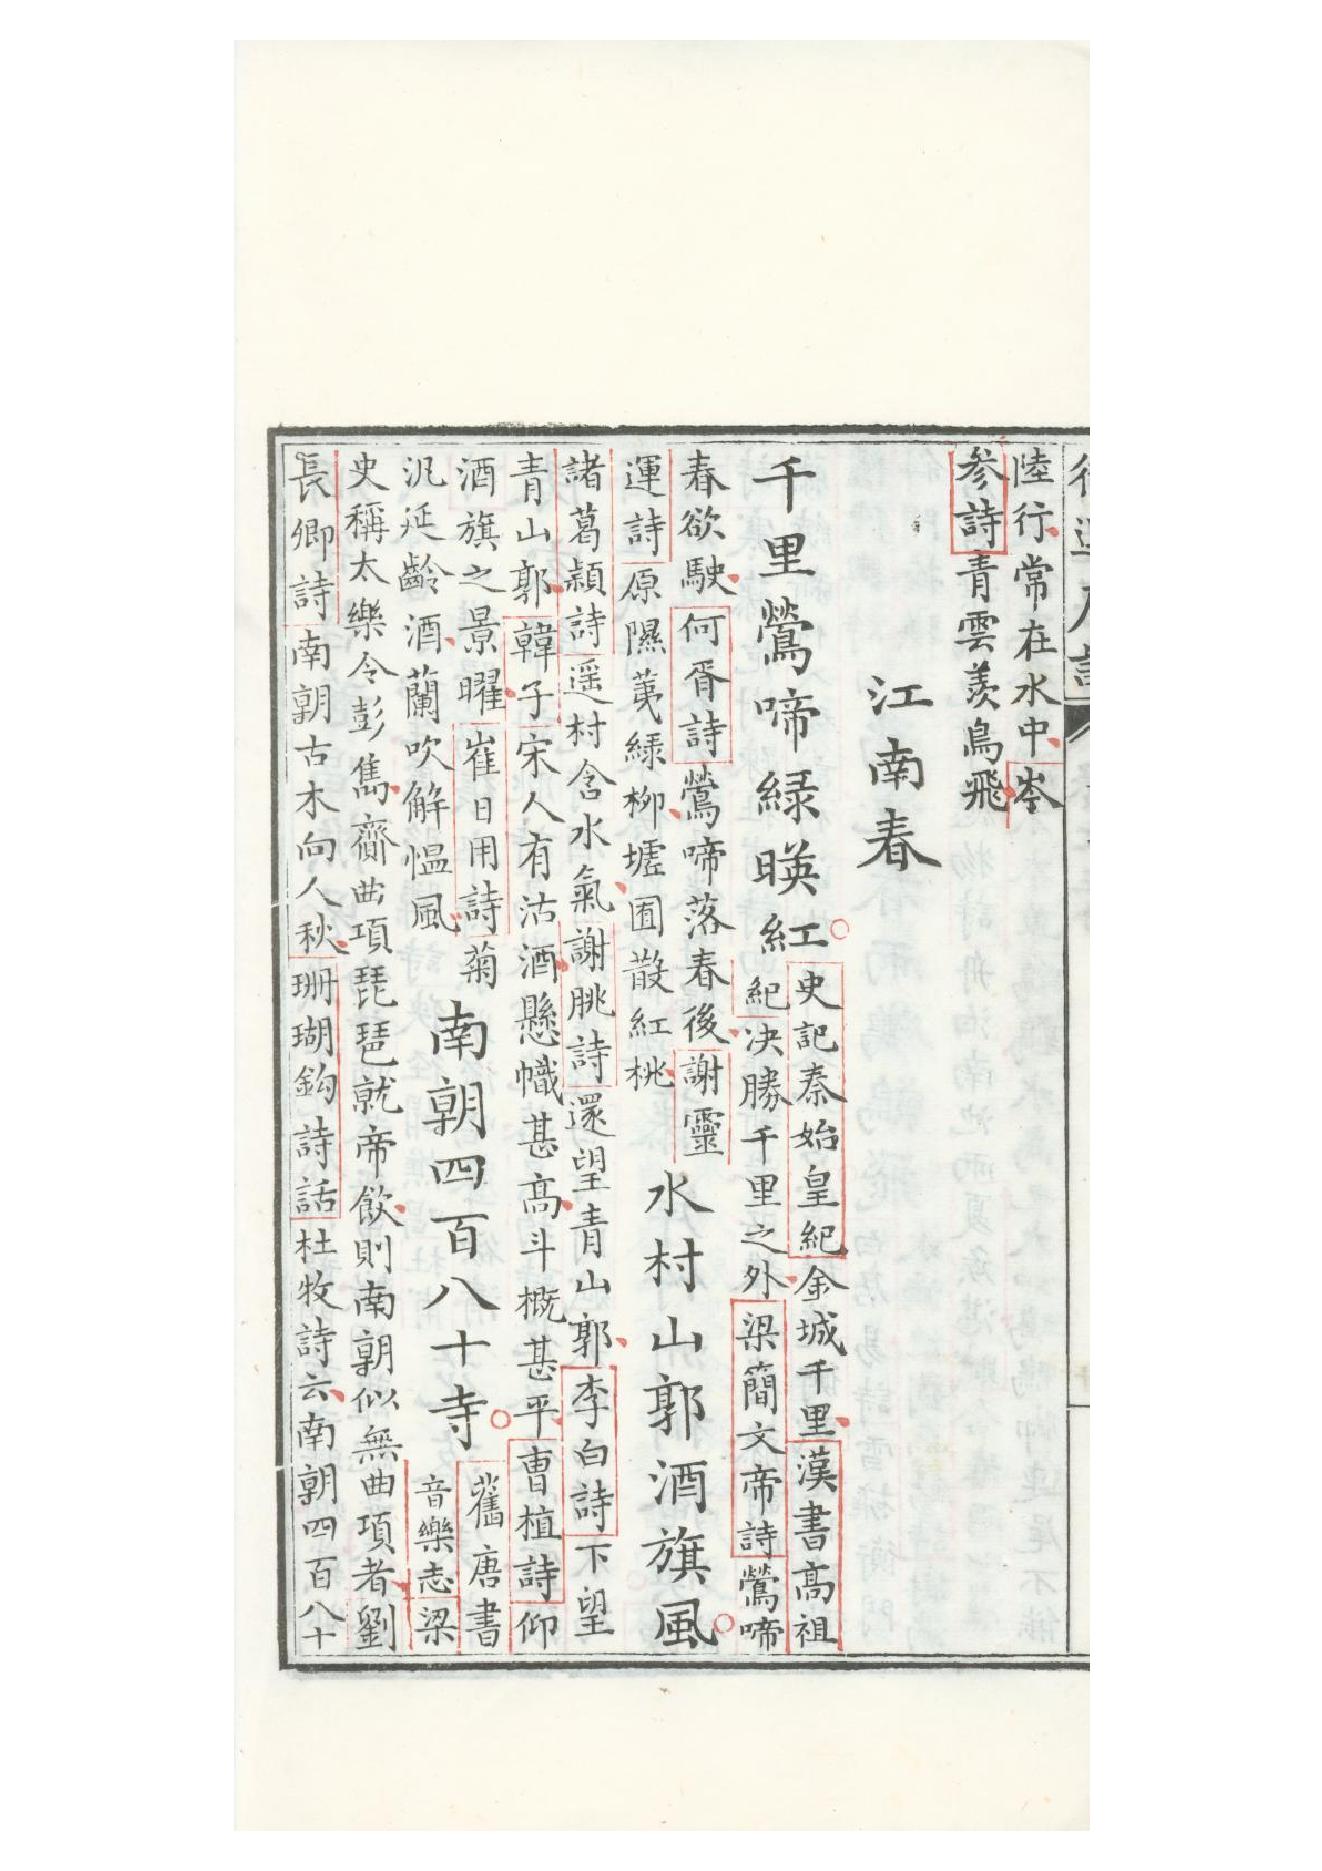 陸行常在水中岑
參詩青雲羨鳥飛
江南春
千里鶯啼綠暎紅
史記秦始皇紀金城千里漢書高祖
紀決勝千里之外梁簡文帝詩鶯啼
春欲駛何胥詩鶯啼落春後謝靈
運詩原隰荑綠柳墟囿散紅桃
水村山郭酒旗風
諸葛穎詩遥村含水氣謝朓詩還望青山郭李白詩下望
青山郭韓子宋人有沽酒懸幟甚高斗概甚平曹植詩仰
酒旗之景曜崔日用詩菊
汎延齡酒蘭吹解愠風
南朝四百八十寺
舊唐書
音樂志梁
史稱太樂令彭雋齎曲項琵琶就帝飲則南朝似無曲項者劉
長卿詩南朝古木向人秋珊瑚鈎詩話杜牧詩云南朝四百八十